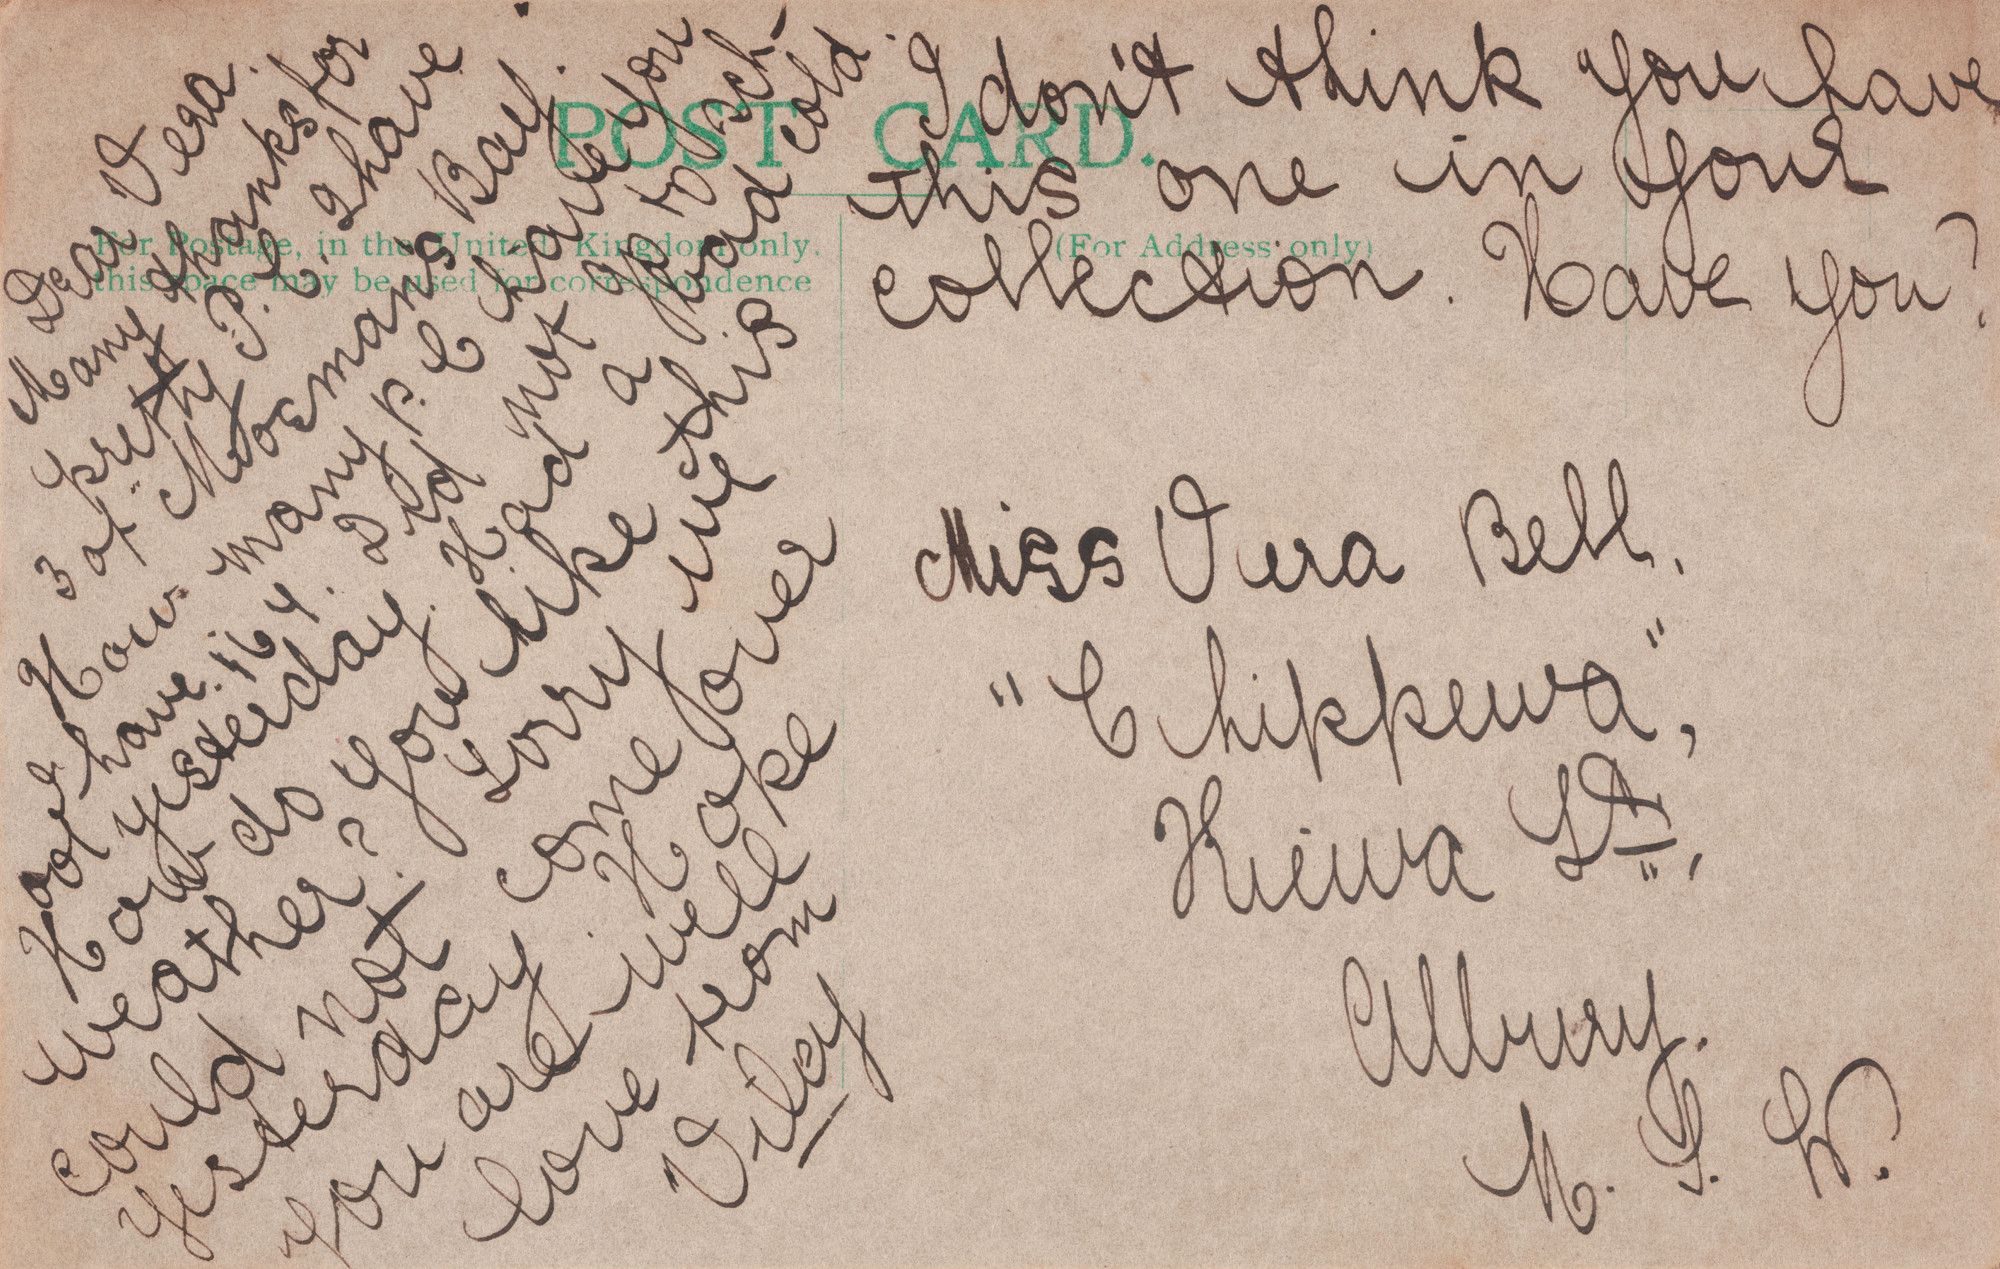 Dear Vera.
Many thanks for
pretty P. C. I have
3 of "Mosmans Bay".
How many P. C have you
have. 164. I did not go to sch-
hool yesterday. Had a bad cold.
How do you like this
weather? Sorry we
could not come over
yesterday. Hope
you are well
love from
I don't think you have
this one in your
collection. Have you?
POST CARD.
For Postage, in the United Kingdom only.
this space may be used for correspondence
(For Address only)
Miss Vera Bell,
"Chippewa",
Kiewa St,
Albury.
N. S. W.